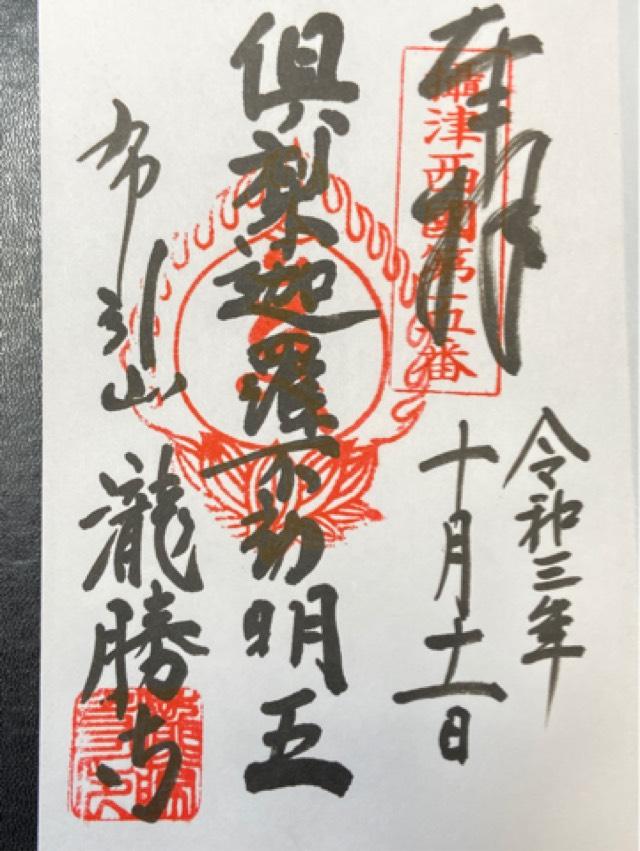 奉拝
攝津西國第五番
令和三年
十月十一日
倶梨迦羅不動明王
布引山
瀧勝寺